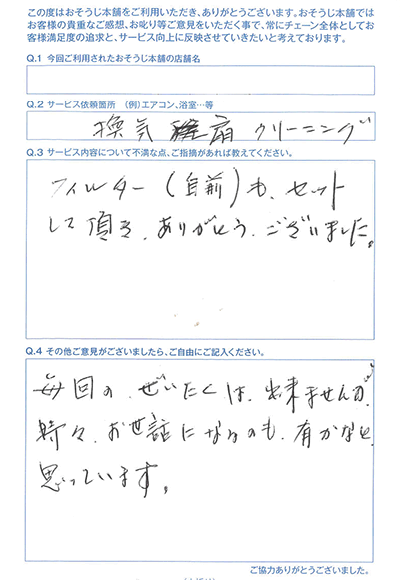 この度はおそうじ本舗をご利用いただき、ありがとうございます。おそうじ本舗では
お客様の貴重なご感想、お叱り等ご意見をいただく事で、常にチェーン全体としてお
客様満足度の追求と、サービス向上に反映させていきたいと考えております。
Q.1 今回ご利用されたおそうじ本舗の店舗名
Q.2 サービス依頼箇所 (例)エアコン、浴室…等
換気扇クリーニング
Q.3 サービス内容について不満な点、ご指摘があれば教えてください。
フィルター(自前)も、セット
して頂き、ありがとう、ございました。
Q.4 その他ご意見がございましたら、ご自由にご記入ください。
毎回の、ぜいたくは、出来ませんが、
時々、お世話になるのも、有かなと、
思っています。
ご協力ありがとうございました。